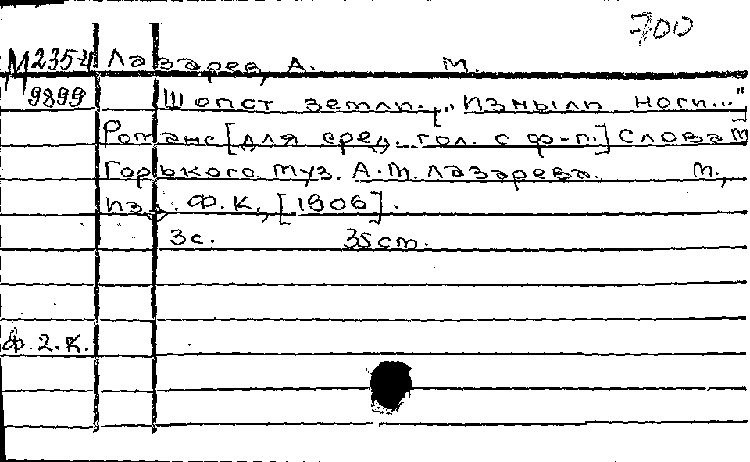 700
М 235-4 Лазарев, А. М.
9899 Шопот земли. „Изныли ноги..."
Романс [для сред. гол. с ф-п.] Слова М
Горького муз. А.М. Лазарева. М.,
изд. Ф.К., [1906].
3с. 35cm.
ф. 2. к.